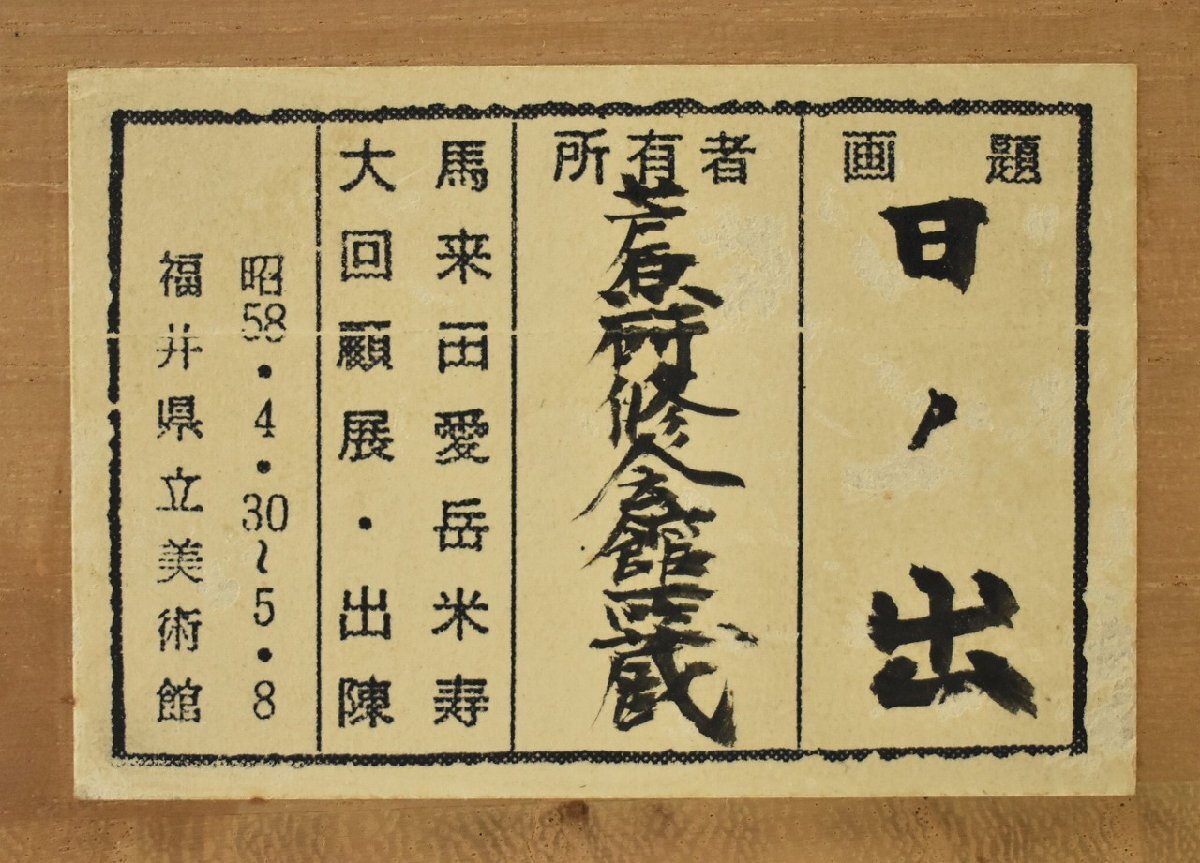 画題
日ノ出
所有者
芦原研修会館所蔵
馬来田愛岳米寿
大回顧展・出陳
昭58・4・30〜5・8
福井県立美術館